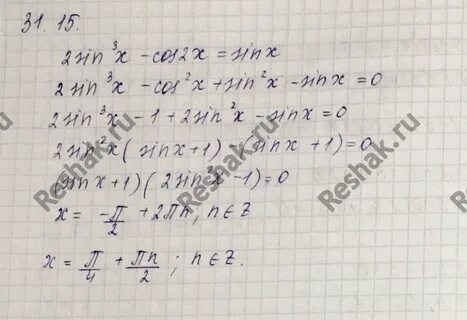 31.15.
2sin³x - cos2x = sinx
2sin³x - cos²x + sin²x - sinx = 0
2sin³x - 1 + 2sin²x - sinx = 0
2sin²x (sinx+1) - (sinx+1) = 0
(sinx+1)(2sin²x-1) = 0
x = -π/2 + 2πn, n∈Z
x = π/4 + πn/2; n∈Z.
Reshak.ru
Reshak.ru
Reshak.ru
Reshak.ru